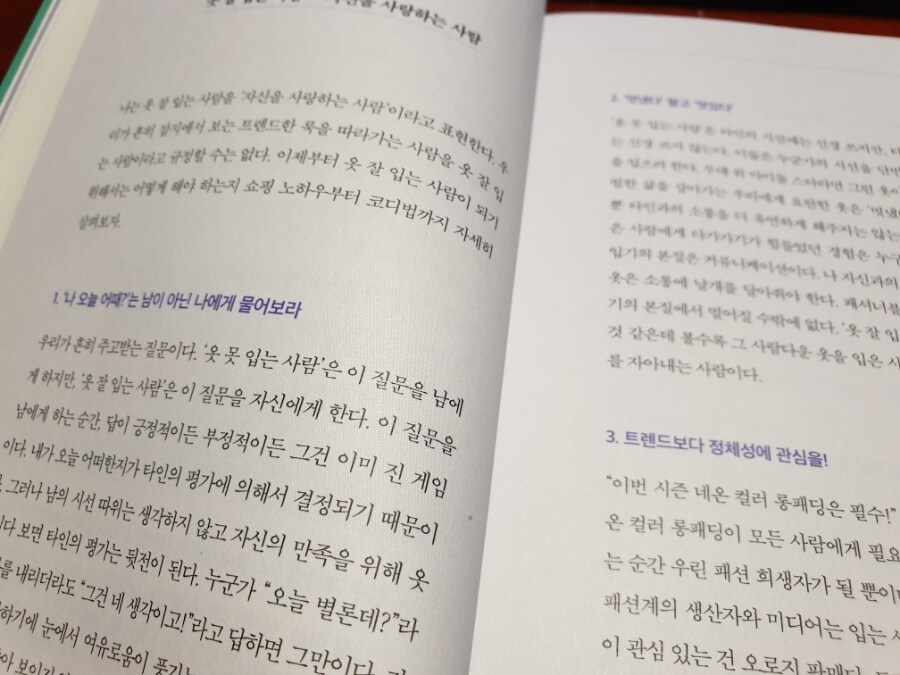 사랑하는 사람
나는 옷 잘 입는 사람을 '자신을 사랑하는 사람'이라고 표현한다. 우
리가 흔히 잡지에서 보는 트렌드한 룩을 따라가는 사람을 옷 잘 입
는 사람이라고 규정할 수는 없다. 이제부터 옷 잘 입는 사람이 되기
위해서는 어떻게 해야 하는지 쇼핑 노하우부터 코디법까지 자세히
살펴보자.
1. '나 오늘 어때?'는 남이 아닌 나에게 물어보라
우리가 흔히 주고받는 질문이다. '옷 못 입는 사람'은 이 질문을 남에
게 하지만, '옷 잘 입는 사람'은 이 질문을 자신에게 한다. 이 질문을
남에게 하는 순간, 답이 긍정적이든 부정적이든 그건 이미 진 게임
이다. 내가 오늘 어떠한지가 타인의 평가에 의해서 결정되기 때문이
그러나 남의 시선 따위는 생각하지 않고 자신의 만족을 위해 옷
보면 타인의 평가는 뒷전이 된다. 누군가 "오늘 별론데?"라
내리더라도 "그건 네 생각이고!"라고 답하면 그만이다.
눈에서 여유로움이
2. '멋냈다' 말고 '멋있다'
'옷 못 입는 사람'은 타인의 시선에는 신경 쓰지만,
는 신경 쓰지 않는다. 이들은 누군가의 시선을
을 입으려 한다. 무대 위 아이돌 스타라면 그런 옷이
범한 삶을 살아가는 우리에게 요란한 옷은
뿐 타인과의 소통을 더 유연하게 해주지는 않는
은 사람에게 다가가기가 힘들었던 경험은 누구
입기의 본질은 커뮤니케이션이다. 나 자신과의
옷은 소통에 날개를 달아줘야 한다. 패셔니블
기의 본질에서 멀어질 수밖에 없다. '옷 잘 입
것 같은데 볼수록 그 사람다운 옷을 입은 사
를 자아내는 사람이다.
3. 트렌드보다 정체성에 관심을!
"이번 시즌 네온 컬러 롱패딩은 필수!"
온 컬러 롱패딩이 모든 사람에게 필요
는 순간 우린 패션 희생자가 될 뿐이
패션계의 생산자와 미디어는 입는
이 관심 있는 건 오로지 판매다.